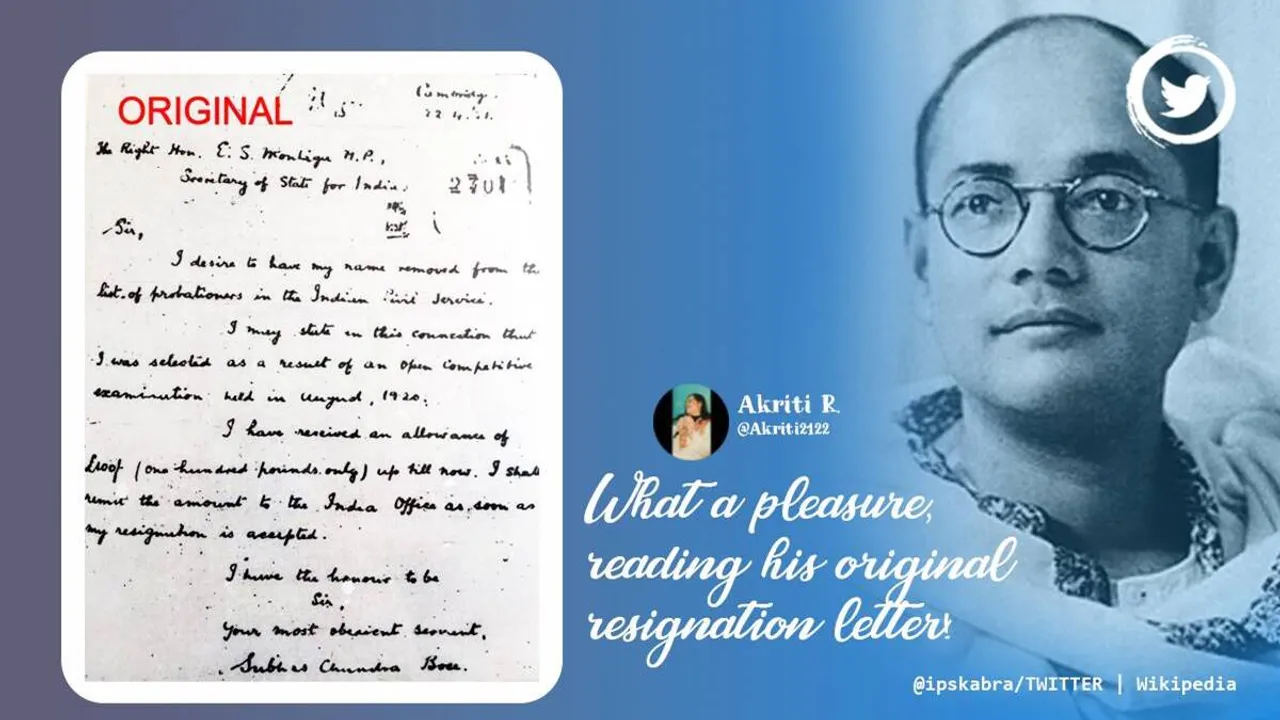 ORIGINAL
22.4.21.
The Right Hon. E. S. Montagu M.P.,
Secretary of State for India.
Sir,
I desire to have my name removed from the
list of probationers in the Indian Civil Service.
I may state in this connection that
I was selected as a result of an open competitive
examination held in August, 1920.
I have received an allowance of
£100/- (one hundred pounds only) up till now. I shall
remit the amount to the India Office as soon as
my resignation is accepted.
I have the honour to be
Sir,
Your most obedient servant,
Subhas Chandra Bose.
Akriti R.
@Akriti2122
What a pleasure,
reading his original
resignation letter!
@ipskabra/TWITTER | Wikipedia